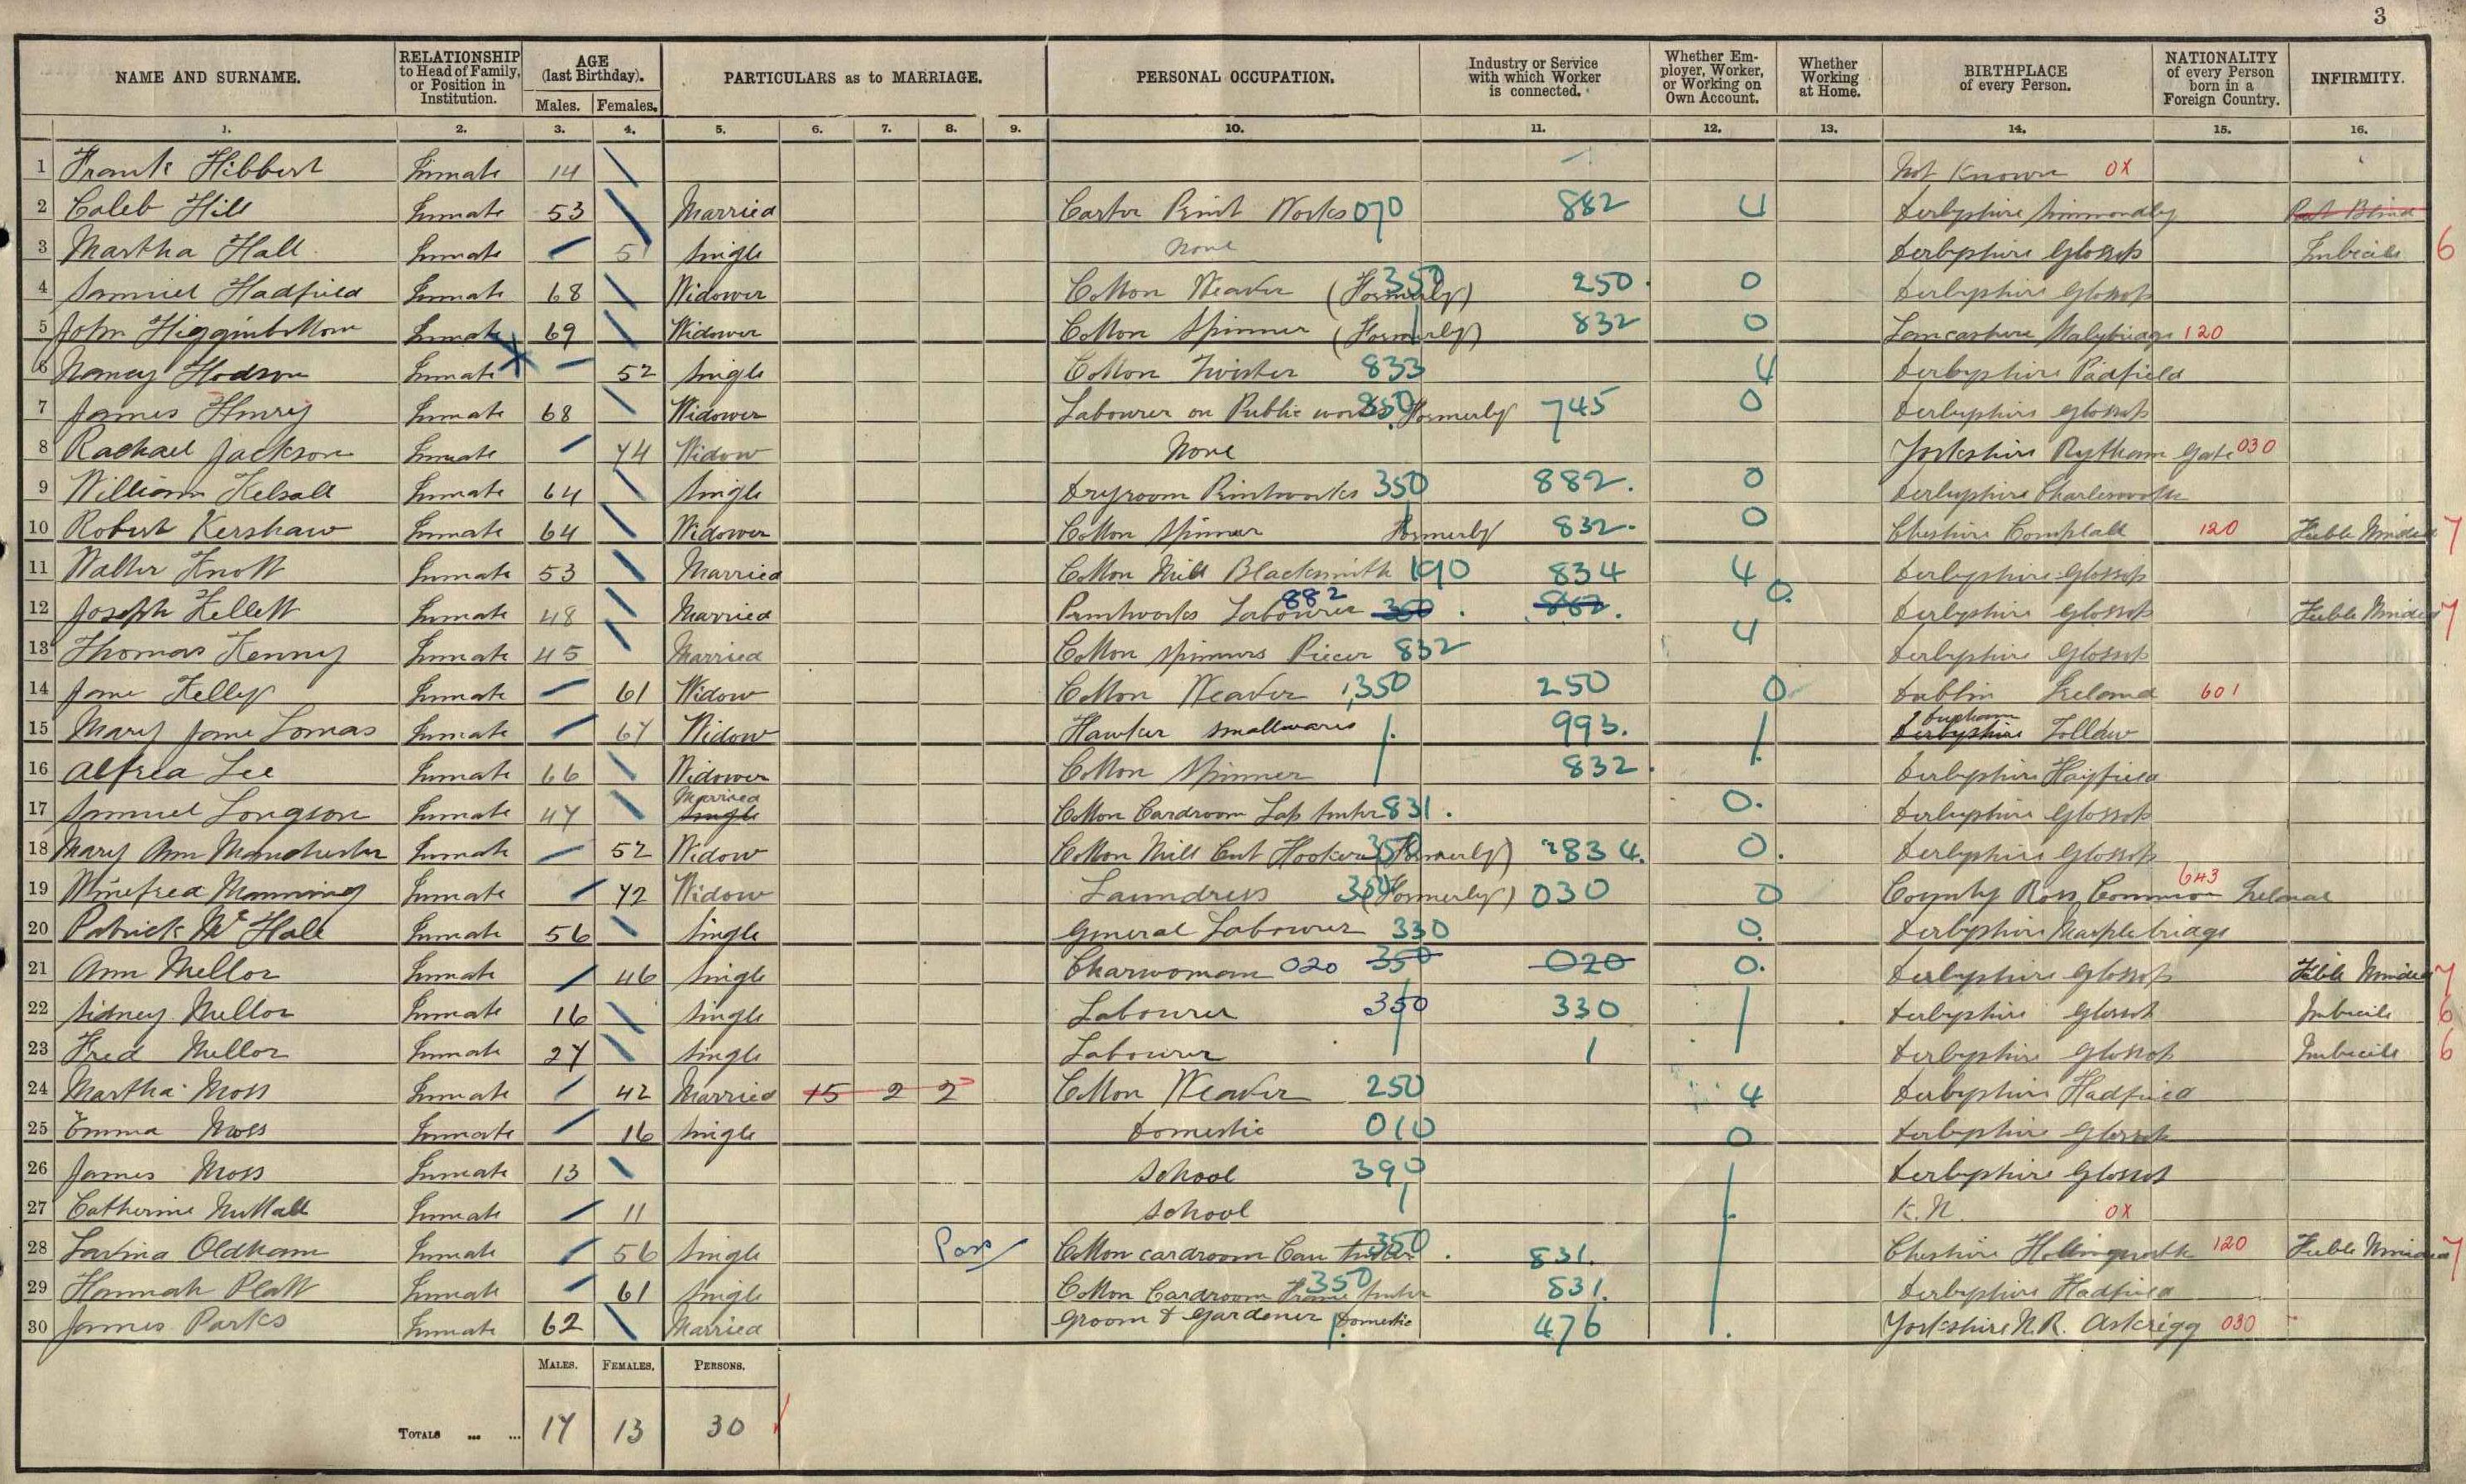 3
NAME AND SURNAME. RELATIONSHIP to Head of Family, or Position in Institution. AGE (last Birthday). Males. Females. PARTICULARS as to MARRIAGE. PERSONAL OCCUPATION. Industry or Service with which Worker is connected. Whether Employer, Worker, or Working on Own Account. Whether Working at Home. BIRTHPLACE of every Person. NATIONALITY of every Person born in a Foreign Country. INFIRMITY.
1. 2. 3. 4. 5. 6. 7. 8. 9. 10. 11. 12. 13. 14. 15. 16.
1 Frank Hibbert Inmate 14 Not Known OX
2 Caleb Hill Inmate 53 Married Carter Print Works 070 882 4 Derbyshire Simmondley Blind
3 Martha Hall Inmate 51 Single None Derbyshire Glossop Imbecile 6
4 Samuel Hadfield Inmate 68 Widower Cotton Weaver (Formerly) 350 250 0 Derbyshire Glossop
5 John Higginbottom Inmate 69 Widower Cotton Spinner (Formerly) 832 0 Lancashire Stalybridge 120
6 Nancy Hodson Inmate 52 Single Cotton Twister 833 4 Derbyshire Padfield
7 James Henry Inmate 68 Widower Labourer on Public works Formerly 350 745 0 Derbyshire Glossop
8 Rachael Jackson Inmate 74 Widow None Yorkshire Gate 030
9 William Kelsall Inmate 64 Single Dryroom Printworks 350 882. 0 Derbyshire Charlesworth
10 Robert Kershaw Inmate 64 Widower Cotton Spinner Formerly 832. 0 Cheshire Compstall 120 Feeble Minded 7
11 Walter Knott Inmate 53 Married Cotton Mill Blacksmith 190 834 4 Derbyshire Glossop
12 Joseph Kellett Inmate 48 Married Printworks Labourer 882 350 882. 0. Derbyshire Glossop Feeble Minded 7
13 Thomas Kenny Inmate 45 Married Cotton Spinners Piecer 832 4 Derbyshire Glossop
14 Jane Kelley Inmate 61 Widow Cotton Weaver 350 250 0 Dublin Ireland 601
15 Mary Jane Lomas Inmate 67 Widow Hawker smallwares 993. Derbyshire
16 Alfred Lee Inmate 66 Widower Cotton Spinner 832. Derbyshire Hayfield
17 Samuel Longson Inmate 47 Married Single Cotton Cardroom Lap tenter 831. 0. Derbyshire Glossop
18 Mary Ann Manchester Inmate 52 Widow Cotton Mill Cut Hooker (Formerly) 350 834. 0. Derbyshire Glossop
19 Winefred Manning Inmate 72 Widow Laundress (Formerly) 350 030 0 County Ross Common Ireland 643
20 Patrick McHale Inmate 56 Single General Labourer 330 0. Derbyshire Marple bridge
21 Ann Mellor Inmate 46 Single Charwoman 020 350 020 0. Derbyshire Glossop Feeble Minded 7
22 Sidney Mellor Inmate 16 Single Labourer 350 330 Derbyshire Glossop Imbecile 6
23 Fred Mellor Inmate 27 Single Labourer Derbyshire Glossop Imbecile 6
24 Martha Moss Inmate 42 Married 15 2 2 Cotton Weaver 250 4 Derbyshire Hadfield
25 Emma Moss Inmate 16 Single Domestic 010 0 Derbyshire Glossop
26 James Moss Inmate 13 School 390 Derbyshire Glossop
27 Catherine Nuttall Inmate 11 School K.N. OX
28 Lavina Oldham Inmate 56 Single Pass Cotton cardroom Can tenter 350 831. Cheshire Hollingworth 120 Feeble Minded 7
29 Hannah Platt Inmate 61 Single Cotton Cardroom Frame tenter 350 831. Derbyshire Hadfield
30 James Parks Inmate 62 Married Groom & Gardener Domestic 476 Yorkshire N.R. Askrigg 030
MALES. FEMALES. PERSONS.
TOTALS ... ... 17 13 30